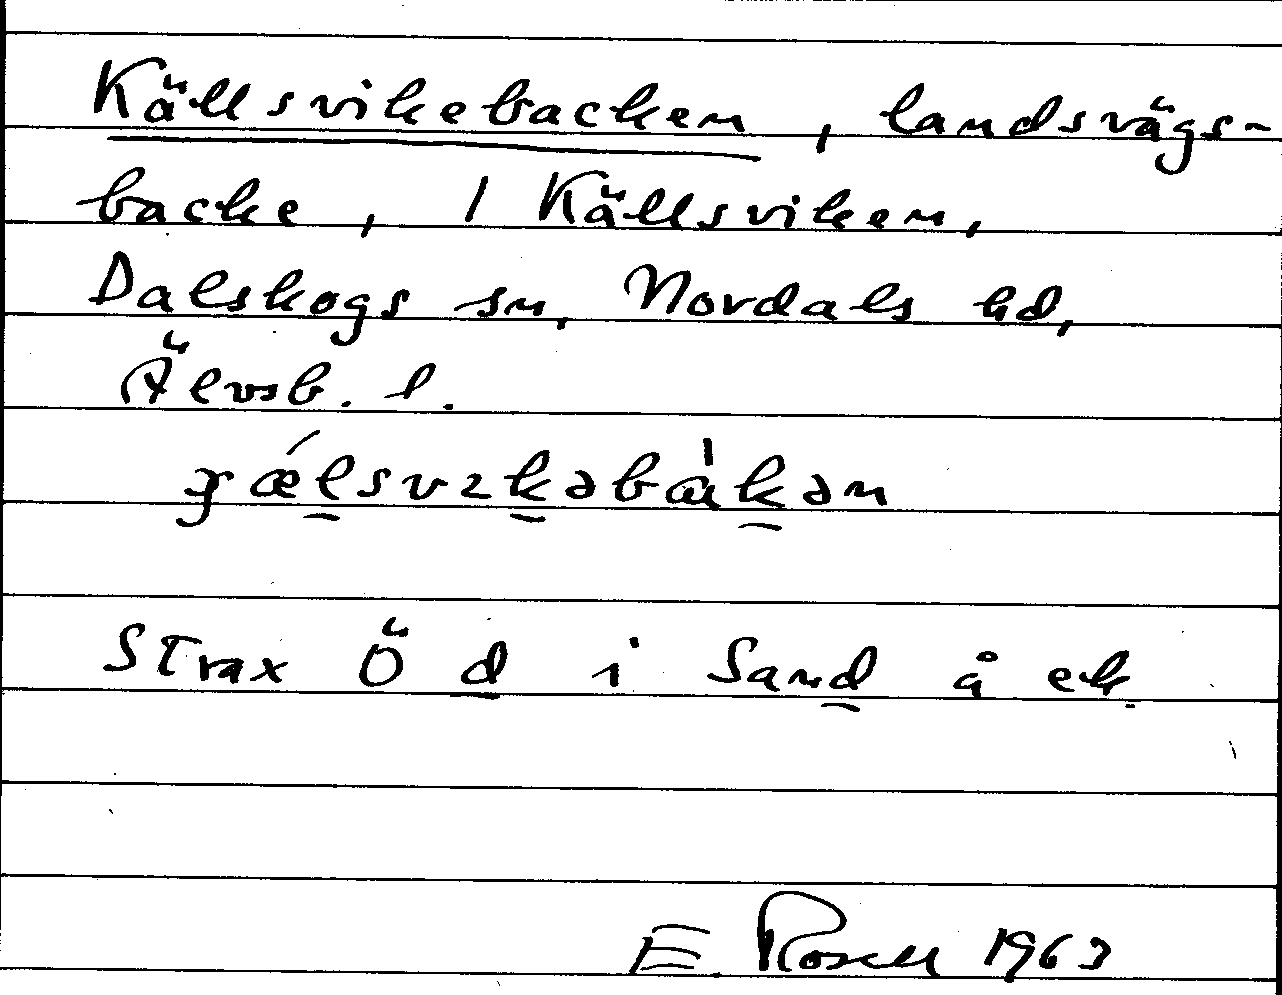 Källsvikebacken, landsvägs-
backe, / Källsviken,
Dalskogs sn, Nordals hd,
Älvsb. l.
Strax Ö d i Sand å ek.
E. Rosell 1963